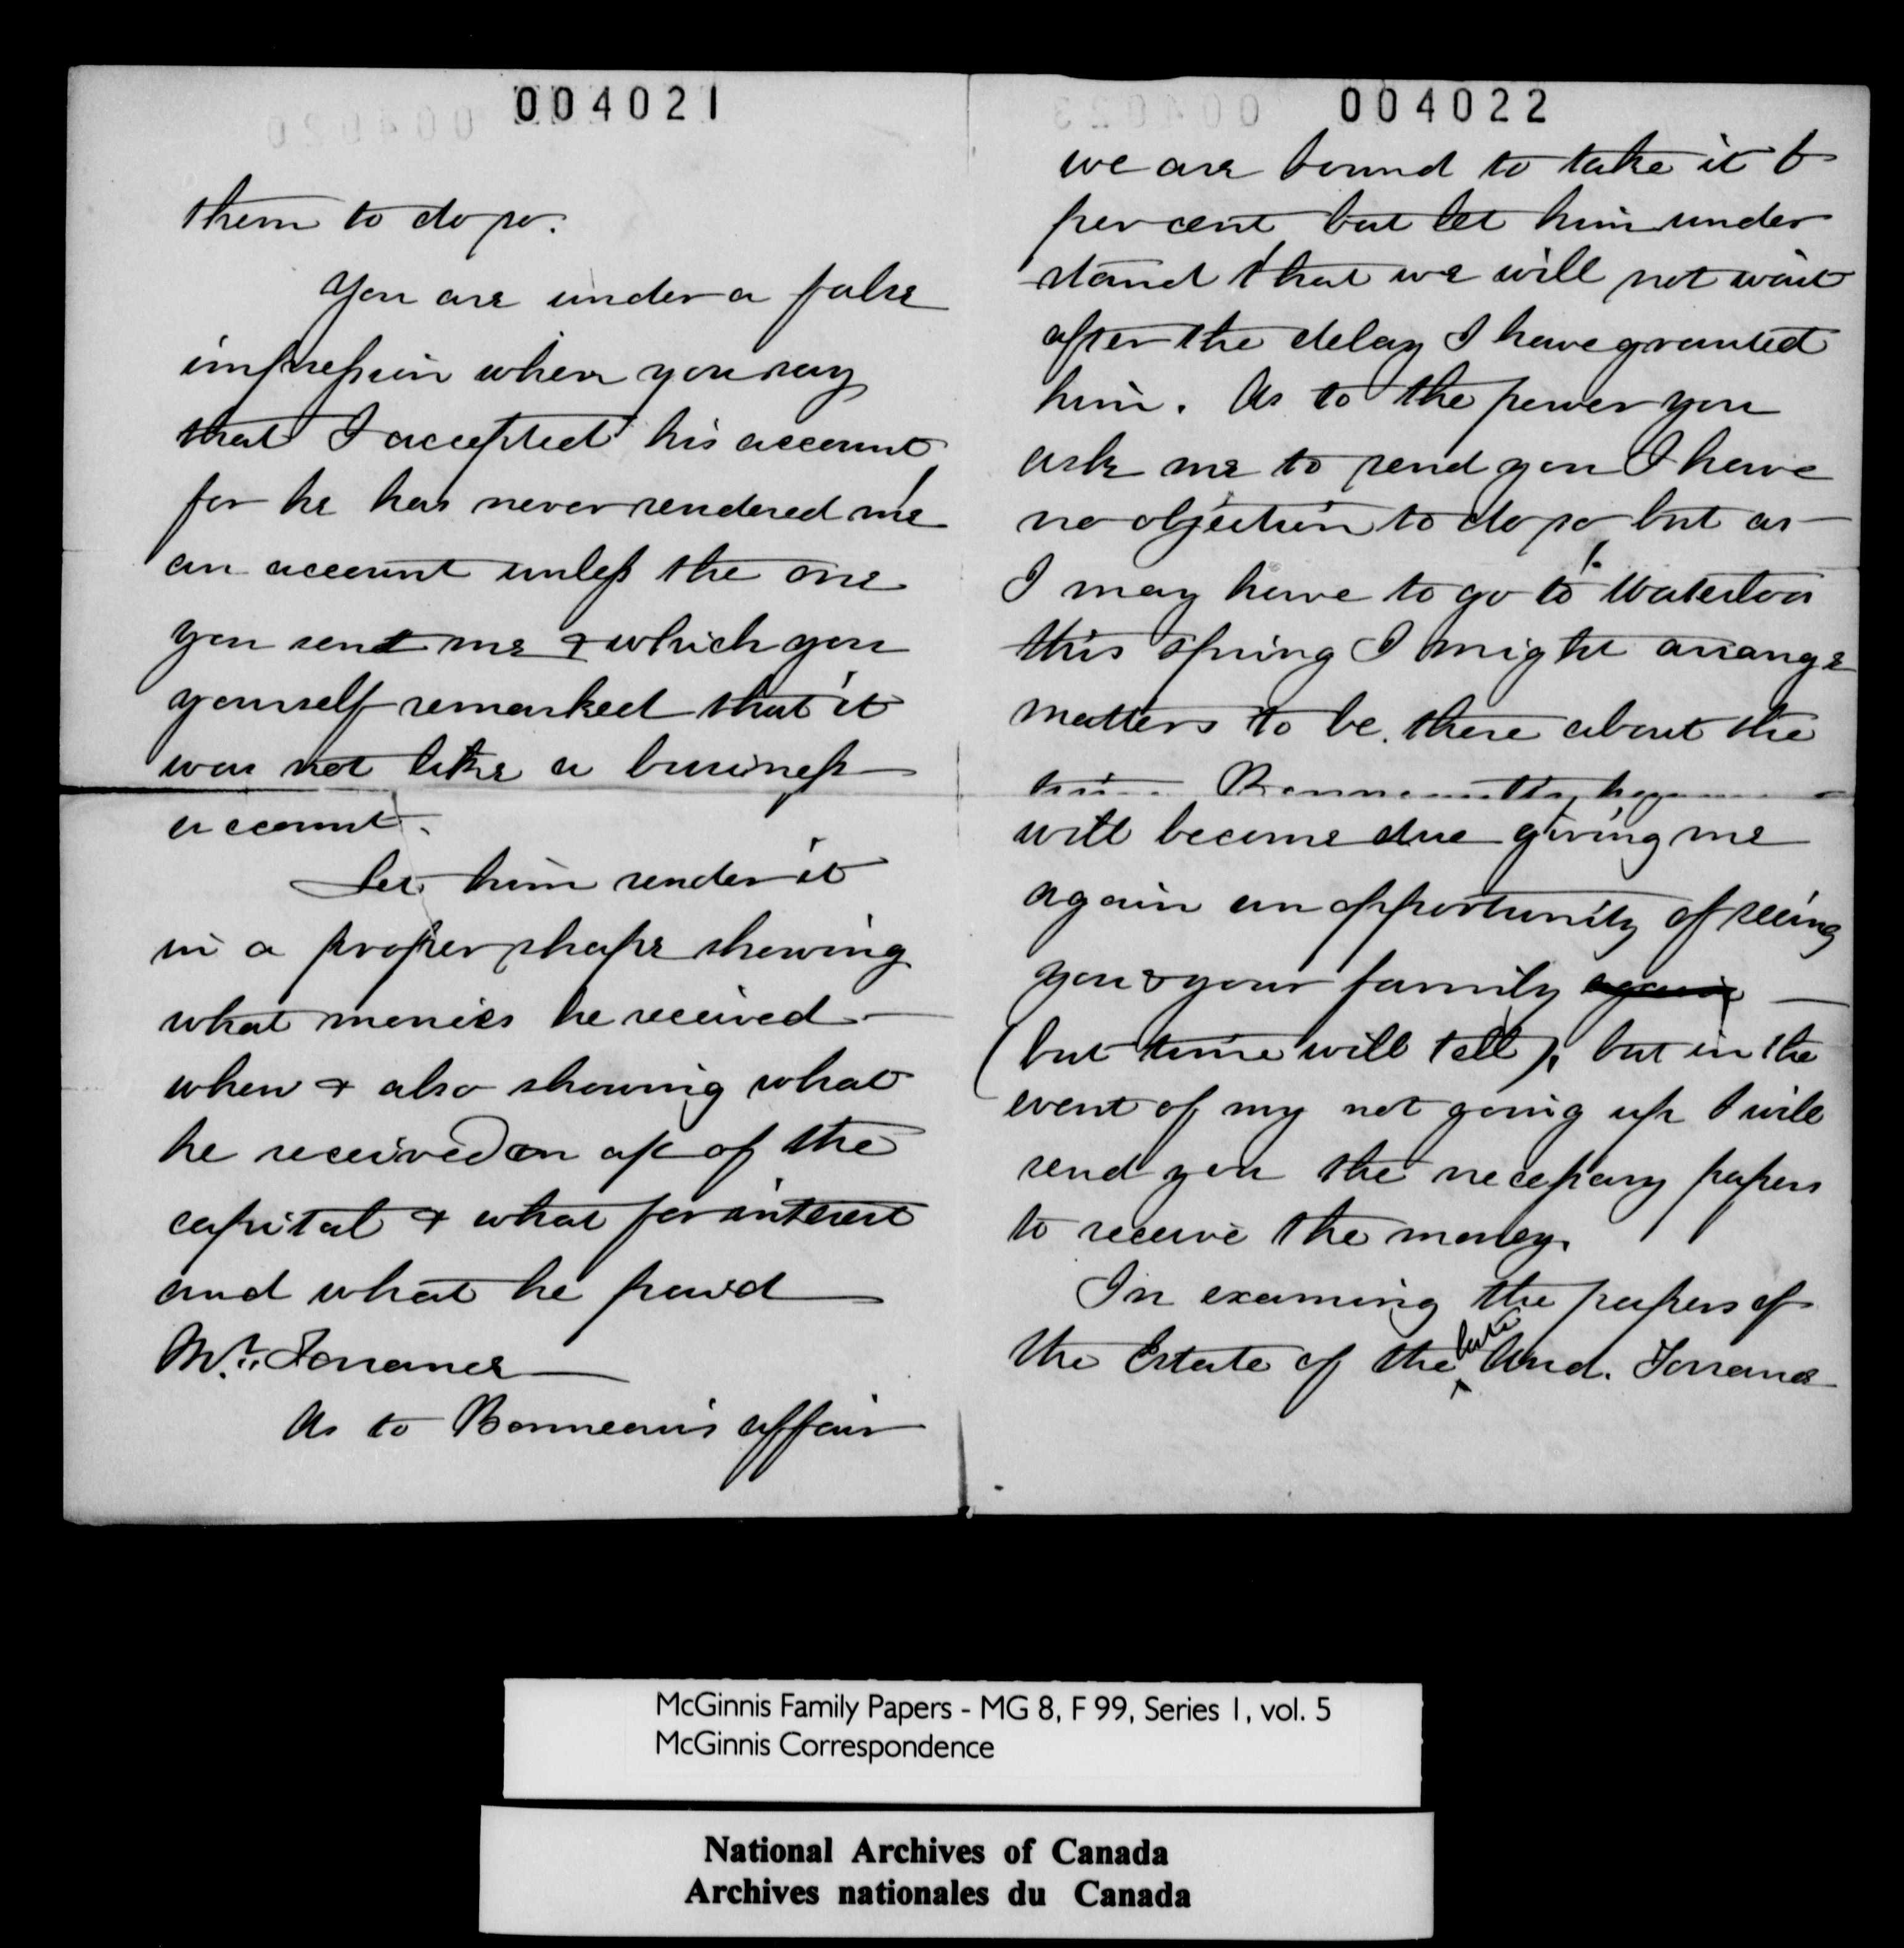 004021
them to do so.
You are under a false
impression when you say
that I accepted his account
for he has never rendered me
an account unless the one
you sent me & which you
yourself remarked that it
was not like a business
account.
Let him render it
in a proper shape shewing
what monies he received
when & also showing what
he received on a/c of the
capital & what for interest
and what he paid
Mr. Torrance
As to Bonneau's affair
004022
we are bound to take it 6
per cent but let him under
stand that we will not wait
after the delay I have granted
him. As to the power you
ask me to send you I have
no objection to do so but as
I may have to go to Waterloo
this spring I might arrange
matters to be there about the
time
will become due giving me
again an opportunity of seeing
you & your family again
(but time will tell), but in the
event of my not going up I will
send you the necessary papers
to receive the money.
In examing the papers of
the Estate of the late And. Torrance
McGinnis Family Papers - MG 8, F 99, Series 1, vol. 5
McGinnis Correspondence
National Archives of Canada
Archives nationales du Canada